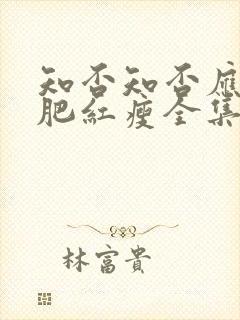 知否知否應
肥紅瘦全集
林富貴